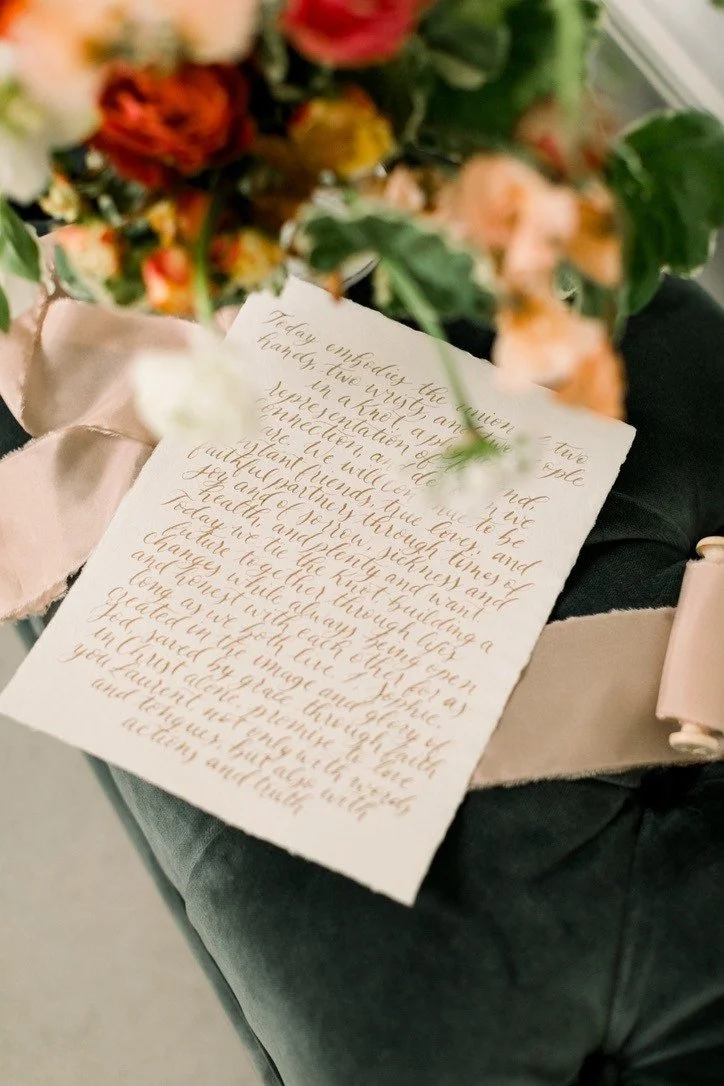 Today embodies the union two
hands, two wrists, and
in a knot a people
representation of
connection, a nd,
we. We will to be
constant friends, true lover, and
faithful partners through times of
joy and of sorrow, sickness and
health, and plenty and want
Today we tie the knot building a
future together through life's
changes while always being open
and honest with each other for as
long as we both live. I Sophie,
created in the image and glory of
God, saved by grace through faith
in Christ alone, promise to love
you Laurent not only with words
and tongues, but also with
actions and truth